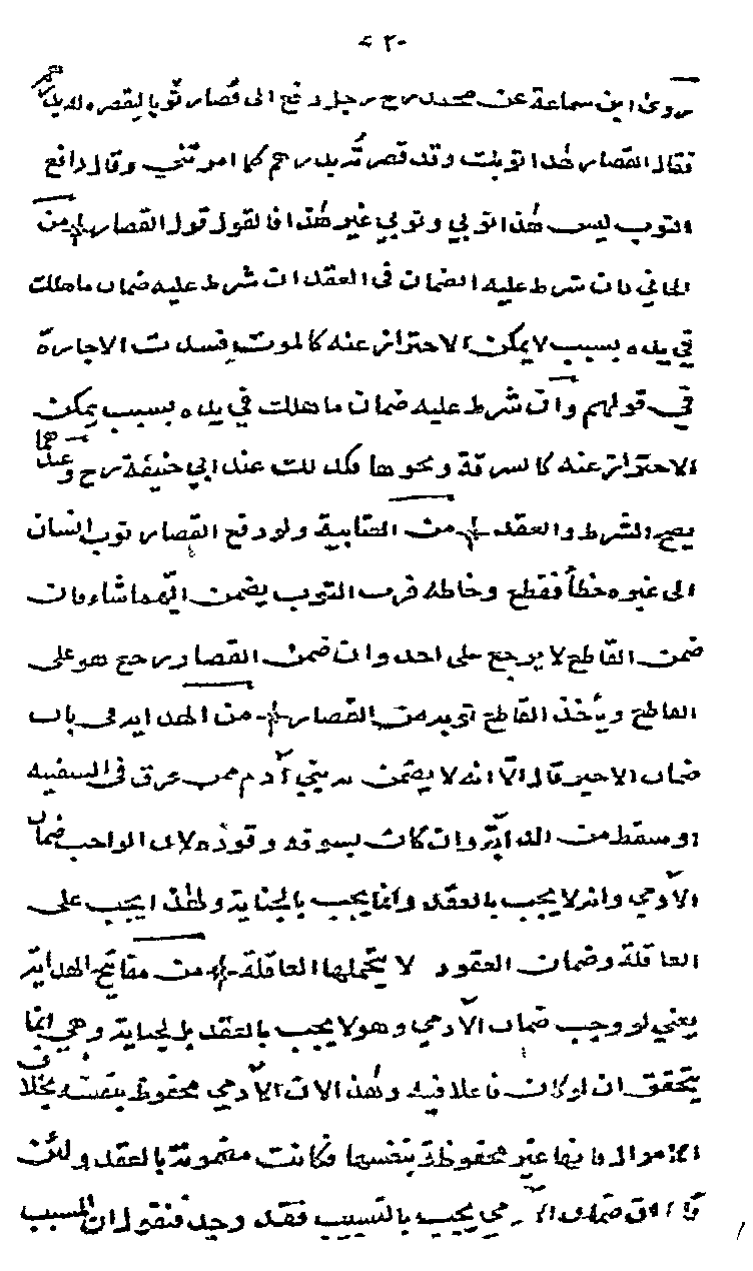 ٢٠
روى ابن سماعة عن محمد رح رجل دفع الى قصار ثوبا ليقصره له بدرهم
فقال القصار هذا ثوبك وقد قصرته بدرهم كما امرتني وقال دافع
الثوب ليس هذا ثوبي وثوبي غير هذا فالقول قول القصار من
الخانى فان شرط عليه الضمان فى العقد ان شرط عليه ضمان ما هلك
في يده بسبب لا يمكن الاحتراز عنه كالموت فسدت الاجارة
في قولهم وان شرط عليه ضمان ما هلك في يده بسبب يمكن
الاحتراز عنه كالسرقة ونحوها فكذلك عند ابي حنيفة رح وعندهما
يصح الشرط والعقد من العتابية ولو دفع القصار ثوب انسان
الى غيره خطأ فقطع وخاطه فرب الثوب يضمن ايهما شاء فان
ضمن القاطع لا يرجع على احد وان ضمن القصار رجع هو على
القاطع ويأخذ القاطع ثوبه من القصار من الهدايه فى باب
ضمان الاجير قال الا انه لا يضمن به بني آدم ممن غرق فى السفينه
او سقط من الدابة وان كان بسوقه وقوده لان الواجب ضمان
الآدمي وانه لا يجب بالعقد وانما يجب بالجناية ولهذا يجب على
العاقلة وضمان العقود لا يتحملها العاقلة من مفاتيح الهداية
يعني لو وجب ضمان الآدمي وهو لا يجب بالعقد بل لجناية وهي انما
يتحقق ان لو كان فاعلا فيه وهذا لان الآدمي محفوظ بنفسه بخلاف
الاموال فانها غير محفوظة بنفسها فكانت مضمونة بالعقد ولئن
قال ان ضمان الآدمي يجب بالتسبيب فقد وجد فنقول ان المسبب